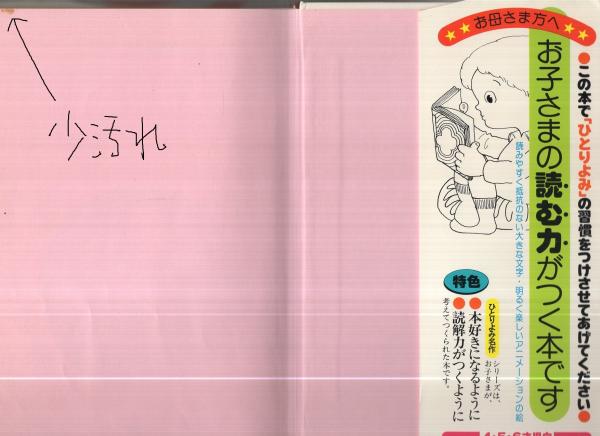 少汚れ
お母さま方へ
●この本で「ひとりよみ」の習慣をつけさせてあげてください●
お子さまの読む力がつく本です
読みやすく抵抗のない大きな文字・明るく楽しいアニメーションの絵
特色
ひとりよみ名作
シリーズは、
お子さまが、
●本好きになるように
●読解力がつくように
考えてつくられた本です。